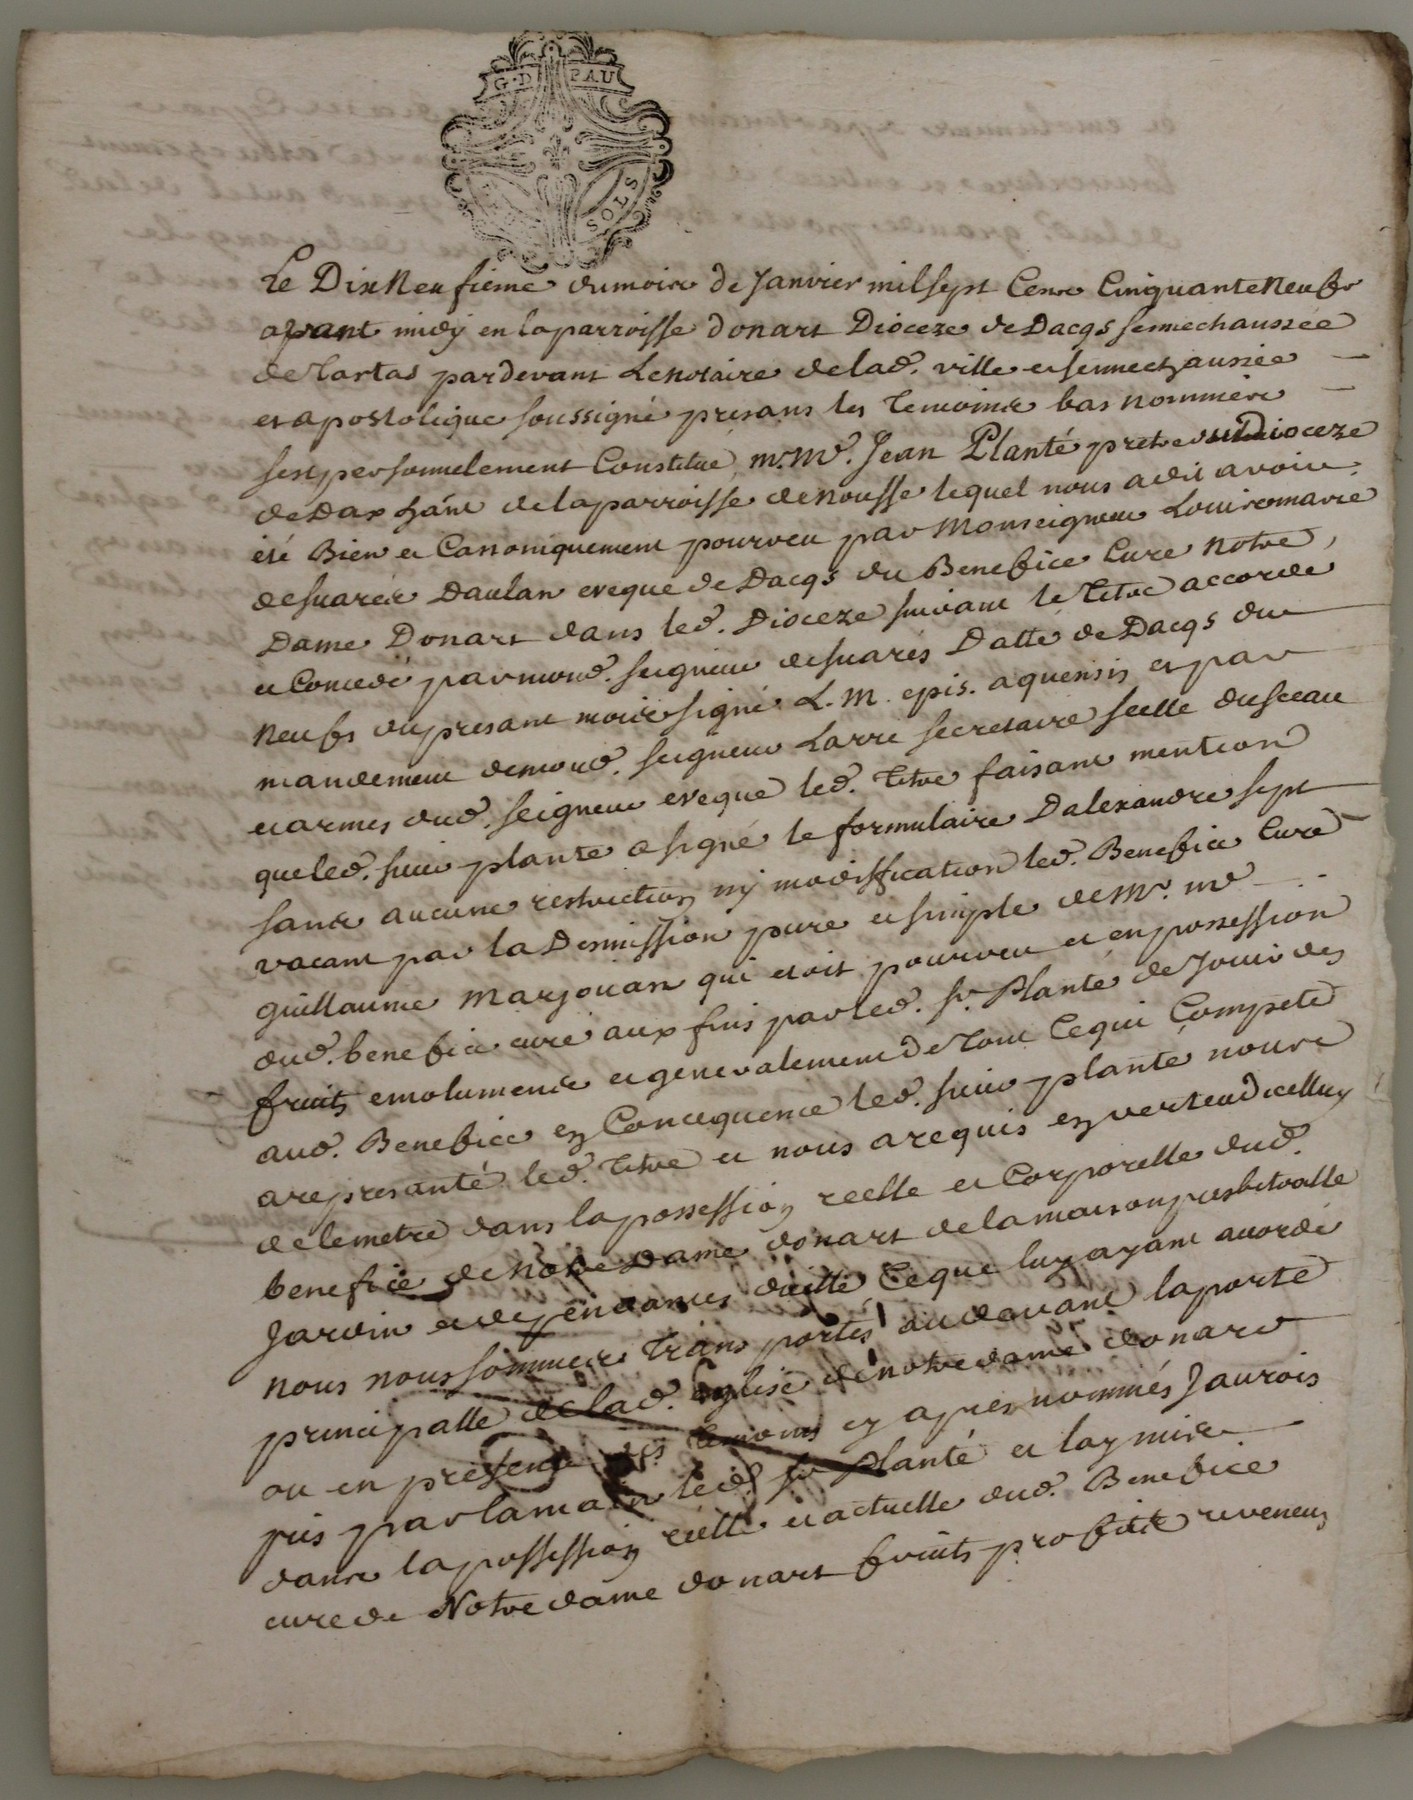 G·D PAU
SOLS
Le Dix Neufieme du mois de Janvier mil sept Cens Cinquante Neufs
avant midy en la parroisse donart Dioceze de Dacqs sennechaussée
de Tartas pardevant Le notaire de lad. ville et sennechaussée
et apostolique soussigné presans les temoins bas nommés
sest personnelement Constitué Mr. Me. Jean Planté pretre du Dioceze
de Dax hánt de la parroisse de nousse lequel nous a dit avoir
été Bien et Canoniquement pourveu par Monseigneur Louis marie
de suarés Daulan eveque de Dacqs du Benefice Cure Notre
Dame Donart dans led. Dioceze suivant le Titre accordé
et Concedé par mond. seigneur de suarés Datté de Dacqs du
Neufs du presant mois signé L. M. epis. aquensis et par
mandement de mond. seigneur Larre secretaire scelle du sceau
et armes dud. seigneur eveque led. Titre faisant mention
que led. sieur planté a signé le formulaire Dalexandre sept
sans aucune restriction ny modiffication led. Benefice Cure
vacant par la Demission pure et simple de Mr. me
guillaume Marjouan qui etoit pourveu et en possession
dud. benefice cure aux fins par led. sr. Planté de Jouir des
fruits emoluments et generalement de Tout Ce qui Compete
aud. Benefice en Concequence led. sieur planté nous
a represanté led. Titre et nous a requis en vertu dicelluy
de le metre dans la possession reelle et Corporelle dud.
benefice de Notre Dame donart de la maison presbitralle
Jardin et dependances dicelle Ce que luy ayant accordé
nous nous sommes Trans portés au davant la porte
principalle de lad. eglise de notre dame donart
ou en presence des temoins cy apres nommés Jaurois
pris par la main led. sr. Planté et lay mis
dans la possession reelle et actuelle dud. Benefice
cure de Notre dame donart fruits profits reveneus